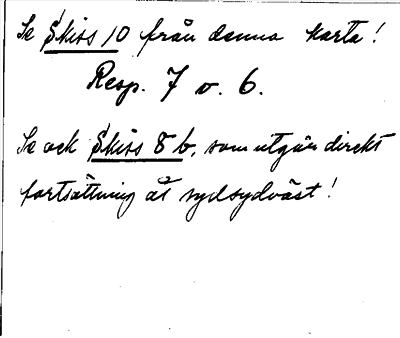 Se Skiss 10 från denna karta!
Resp. 7 o. 6.
Se ock Skiss 8 b, som utgör direkt
fortsättning åt sydsydväst!